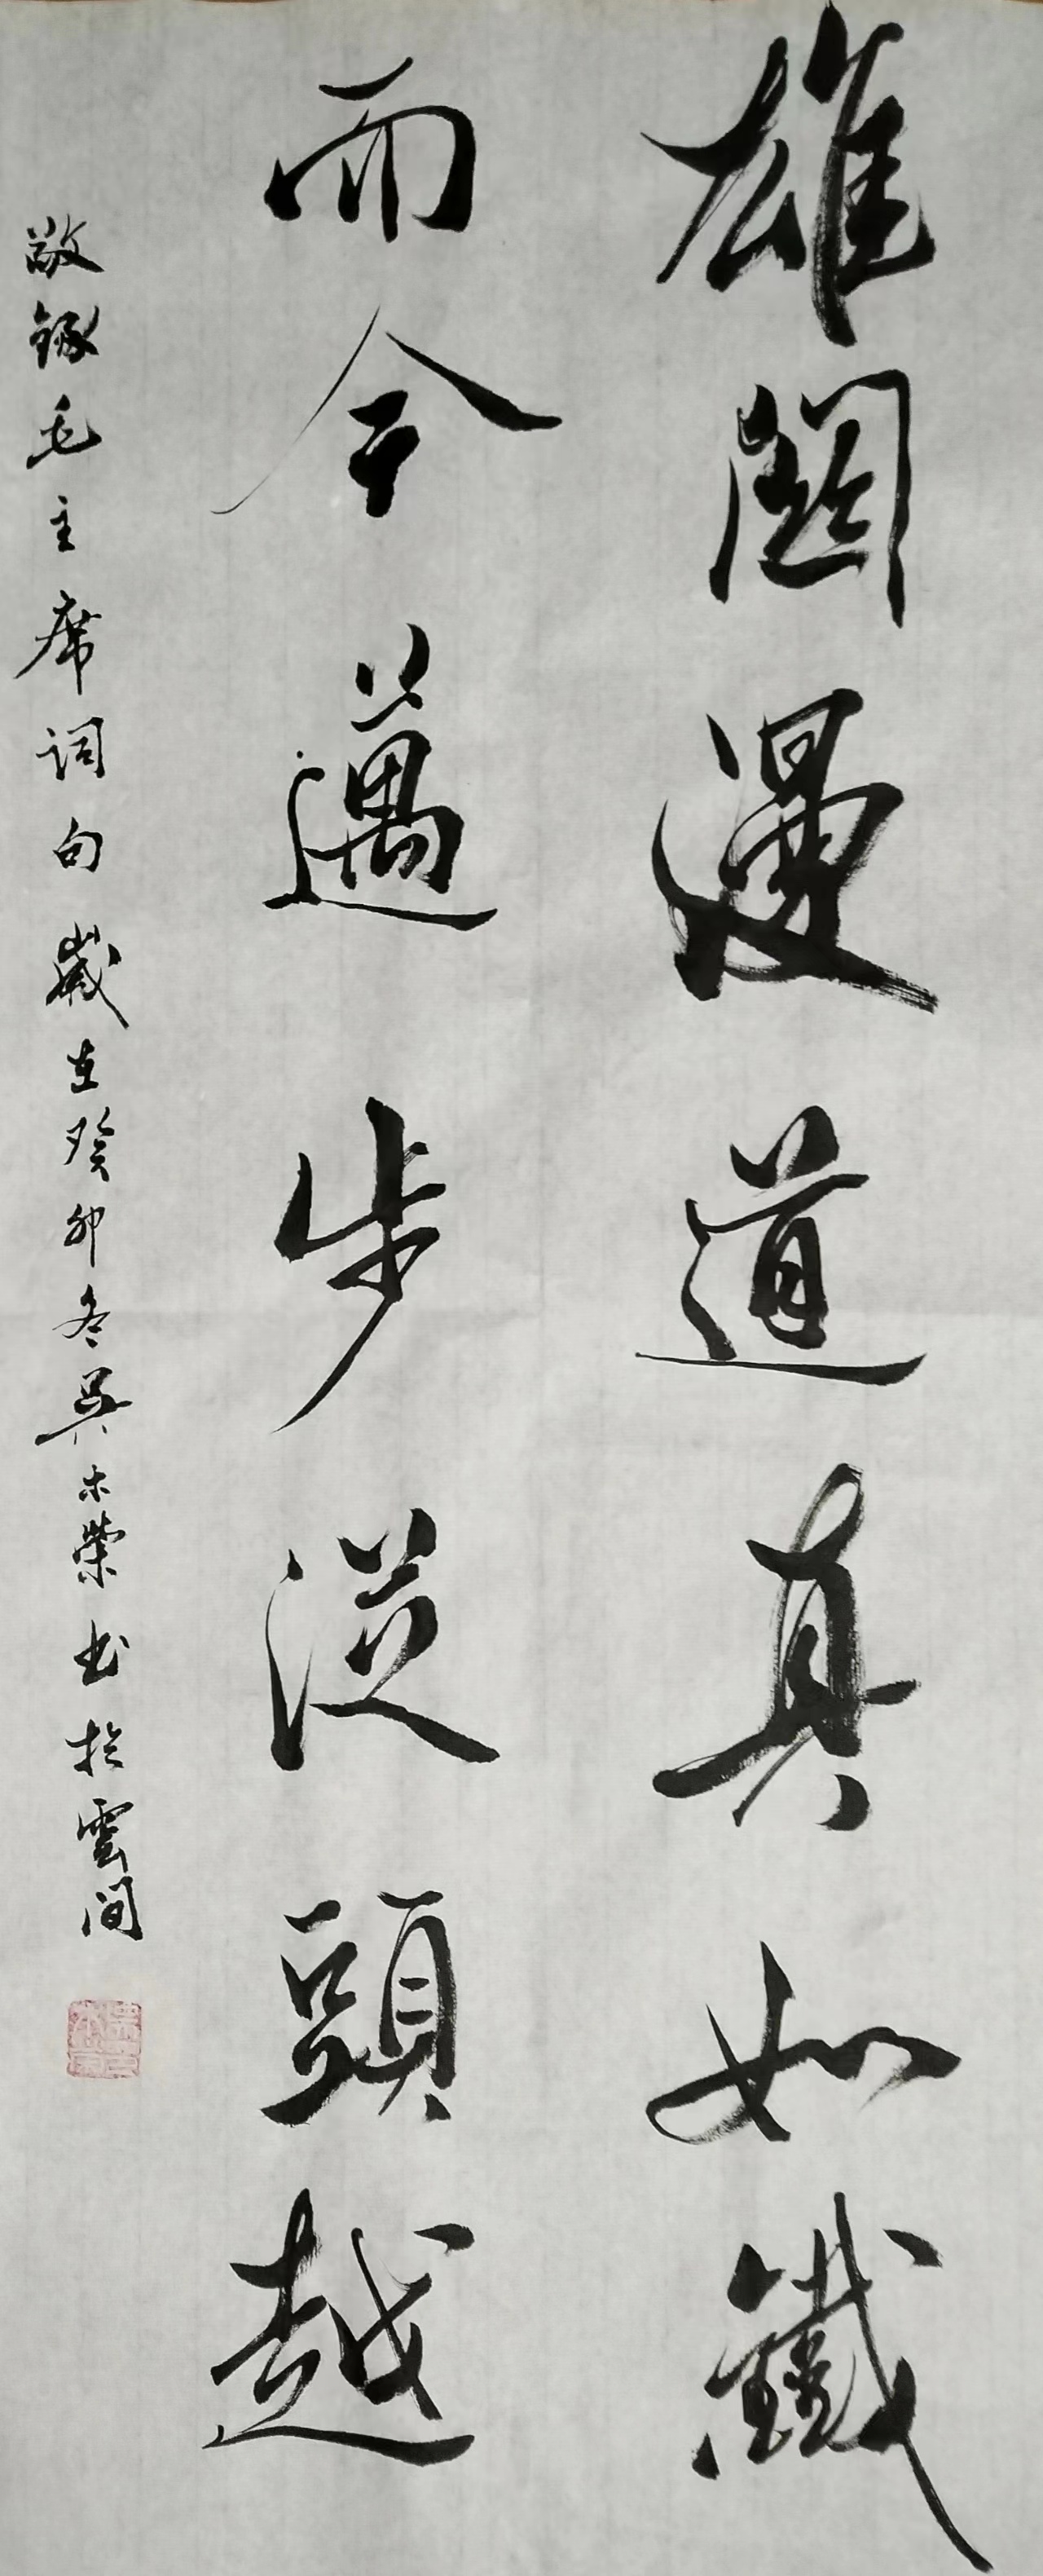 雄關漫道真如鐵
而今邁步從頭越
敬錄毛主席詞句歲在癸卯冬吳木榮书於雲间